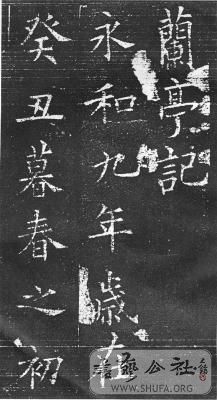 蘭亭記
永和九年歲在
癸丑暮春之初
書藝公社
WWW.SHUFA.ORG